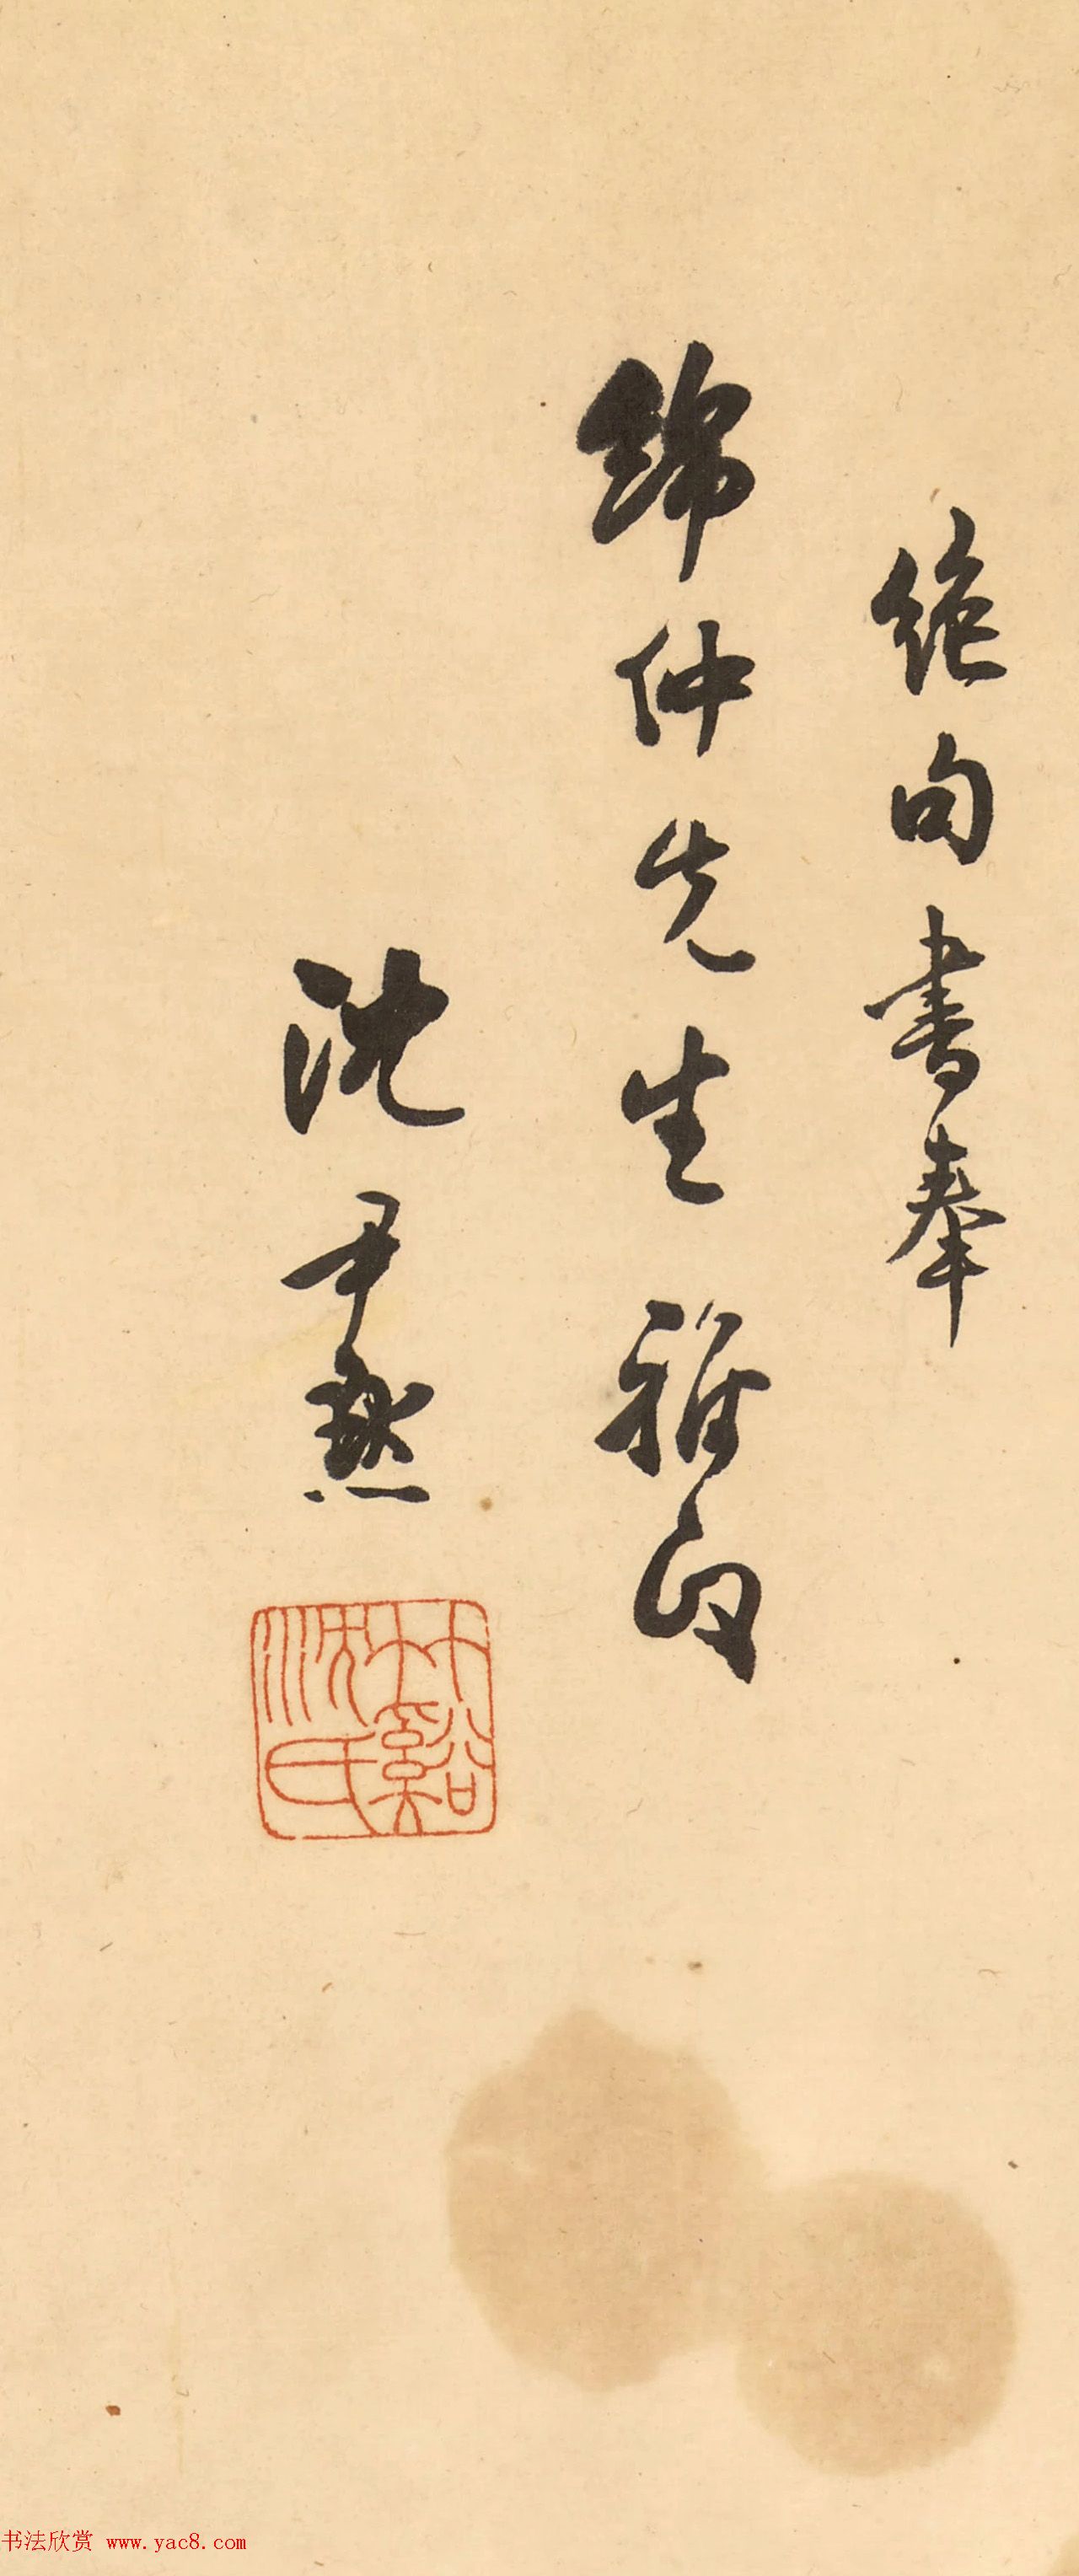 絶句書奉
錦仲先生雅正
沈尹默
竹谿沈氏
书法欣赏 www.yac8.com